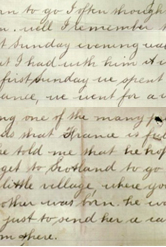 en to go I often though
n. well I remember t
st Sunday evening wa
t I had with him it w
first Sunday we spent
ance, we went for a w
ng one of the many
ds that France is
e told me that he ho
get to Scotland to go
little village, where yo
other was born he w
just to send her a ca
m there.